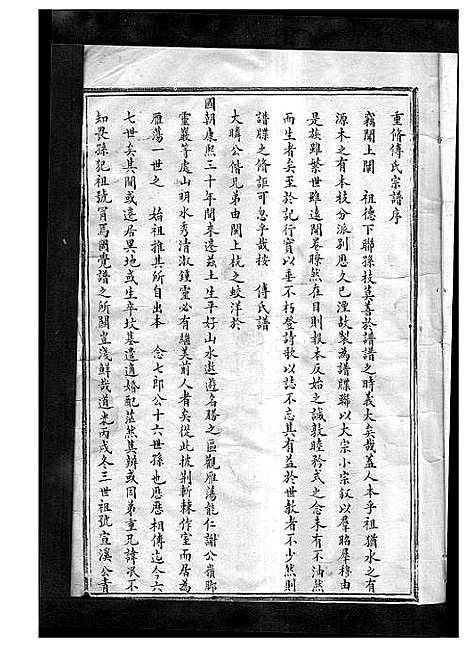 重修傅氏宗譜序
竊聞上闡　祖德下聯孫枝莫善於譜譜之時義大矣哉蓋人本乎祖猶水之有
源木之有本枝分派別歷久已湮故製為譜牒聯以大宗小宗叙以羣昭羣穆由
是族雖繁世雖遠開卷瞭然在目則報本反始之誠敦睦矜式之念未有不油然
而生者矣至於記行實以垂不朽登詩歌以誌不忘其有益於世教者不少然則
譜牒之脩詎可忽乎哉按　傅氏譜
大暲公偕兄弟由閩上杭之蛟洋於
國朝康熙三十年間來遷茲土生平好山水遨遊名勝之區觀雁蕩龍仁謝公嶺腳
靈巖等處山明水秀清淑鍾靈必有繼美前人者矣從此披荆斬棘作室而居為
雁蕩一世之　始祖推其所自出本　念七郎公十六世孫也歷歷相傳迄今六
七世矣其間或遷居異地或生卒坟墓遺遺婚配茫然莫辨或同弟重兄諱泯不
知畏孫犯祖號冐焉罔覺譜之所關豈淺鮮哉道光丙戌冬三世祖號宣溪公青